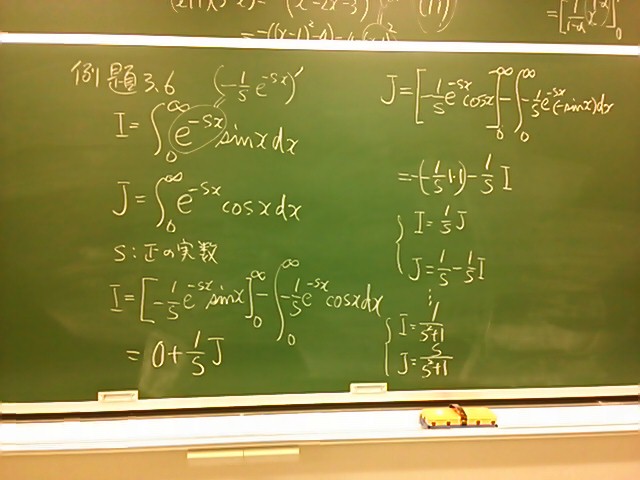 = -((x-1)²-4)
例題3.6
(-1/s e^{-sx})'
I = ∫₀^∞ e^{-sx} sinx dx
J = ∫₀^∞ e^{-sx} cosx dx
s:正の実数
I = [-1/s e^{-sx} sinx]₀^∞ - ∫₀^∞ -1/s e^{-sx} cosx dx
= 0 + 1/s J
J = [-1/s e^{-sx} cosx]₀^∞ - ∫₀^∞ -1/s e^{-sx} (-sinx) dx
= -(-1/s 1·1) - 1/s I
{ I = 1/s J
J = 1/s - 1/s I
⋮
{ I = 1/(s²+1)
J = s/(s²+1)